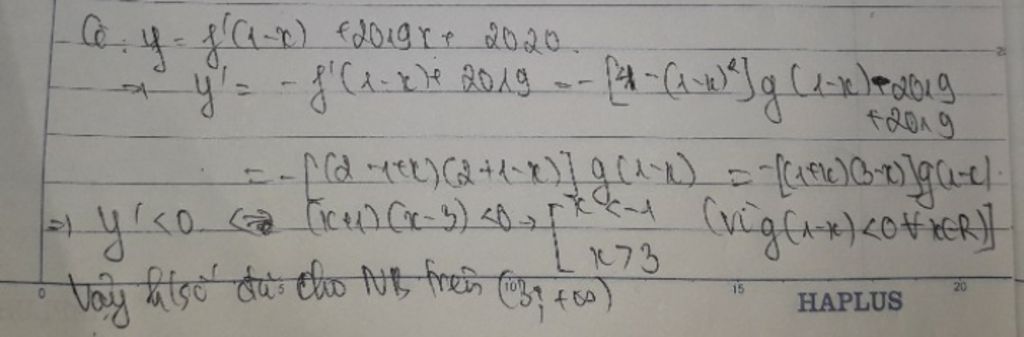 Có: y = f'(1-x) + 2019x + 2020.
⇒ y' = - f'(1-x) + 2019 = - [4 - (1-x)²] g (1-x) - 2019
+ 2019
= - [(2 - 1+x)(2+1-x)] g (1-x) = -[(1+x)(3-x)]g(1-x).
⇒ y' < 0 ⇔ (x+1)(x-3) < 0 → [ x < -1 (vì g(1-x) < 0 ∀ x∈R)]
x > 3
Vậy h/số đã cho NB trên (3; +∞)
0 10 15 HAPLUS 20